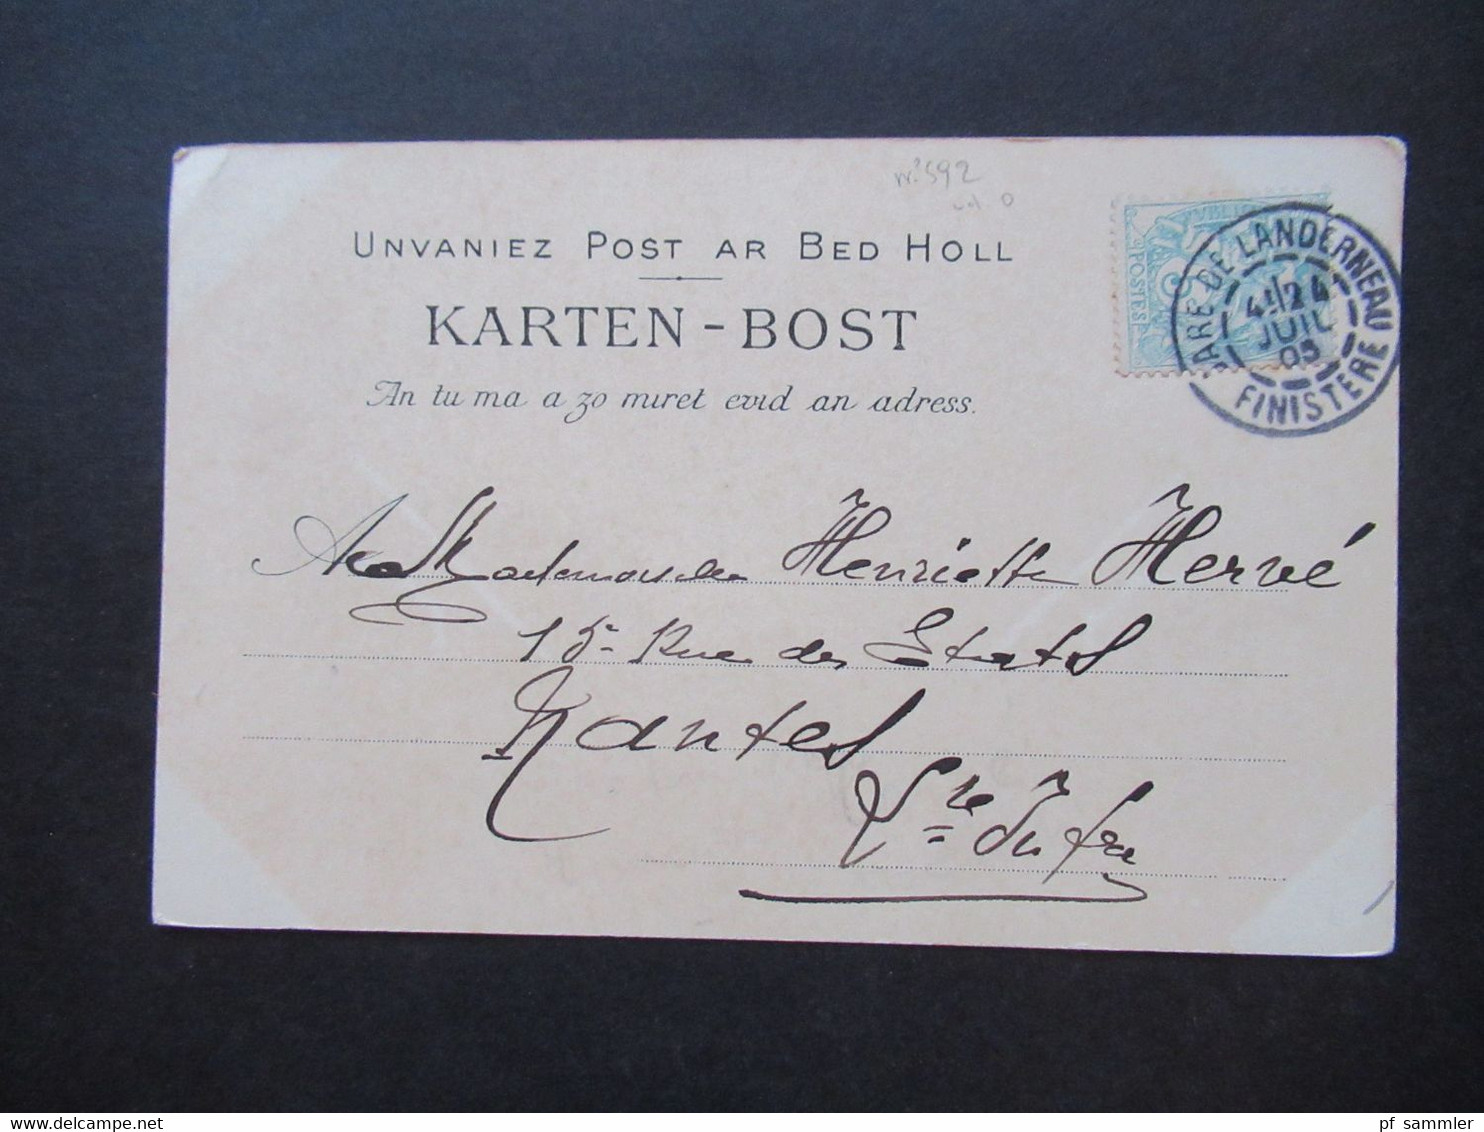 UNVANIEZ POST AR BED HOLL
KARTEN-BOST
An tu ma a zo miret evid an adress.
POSTES
GARE DE LANDERNEAU
4E/24
JUIL
05
FINISTERE
Mademoiselle Henriette Hervé
15 Rue des Etats
Nantes
Lre Infre
pf_sammler